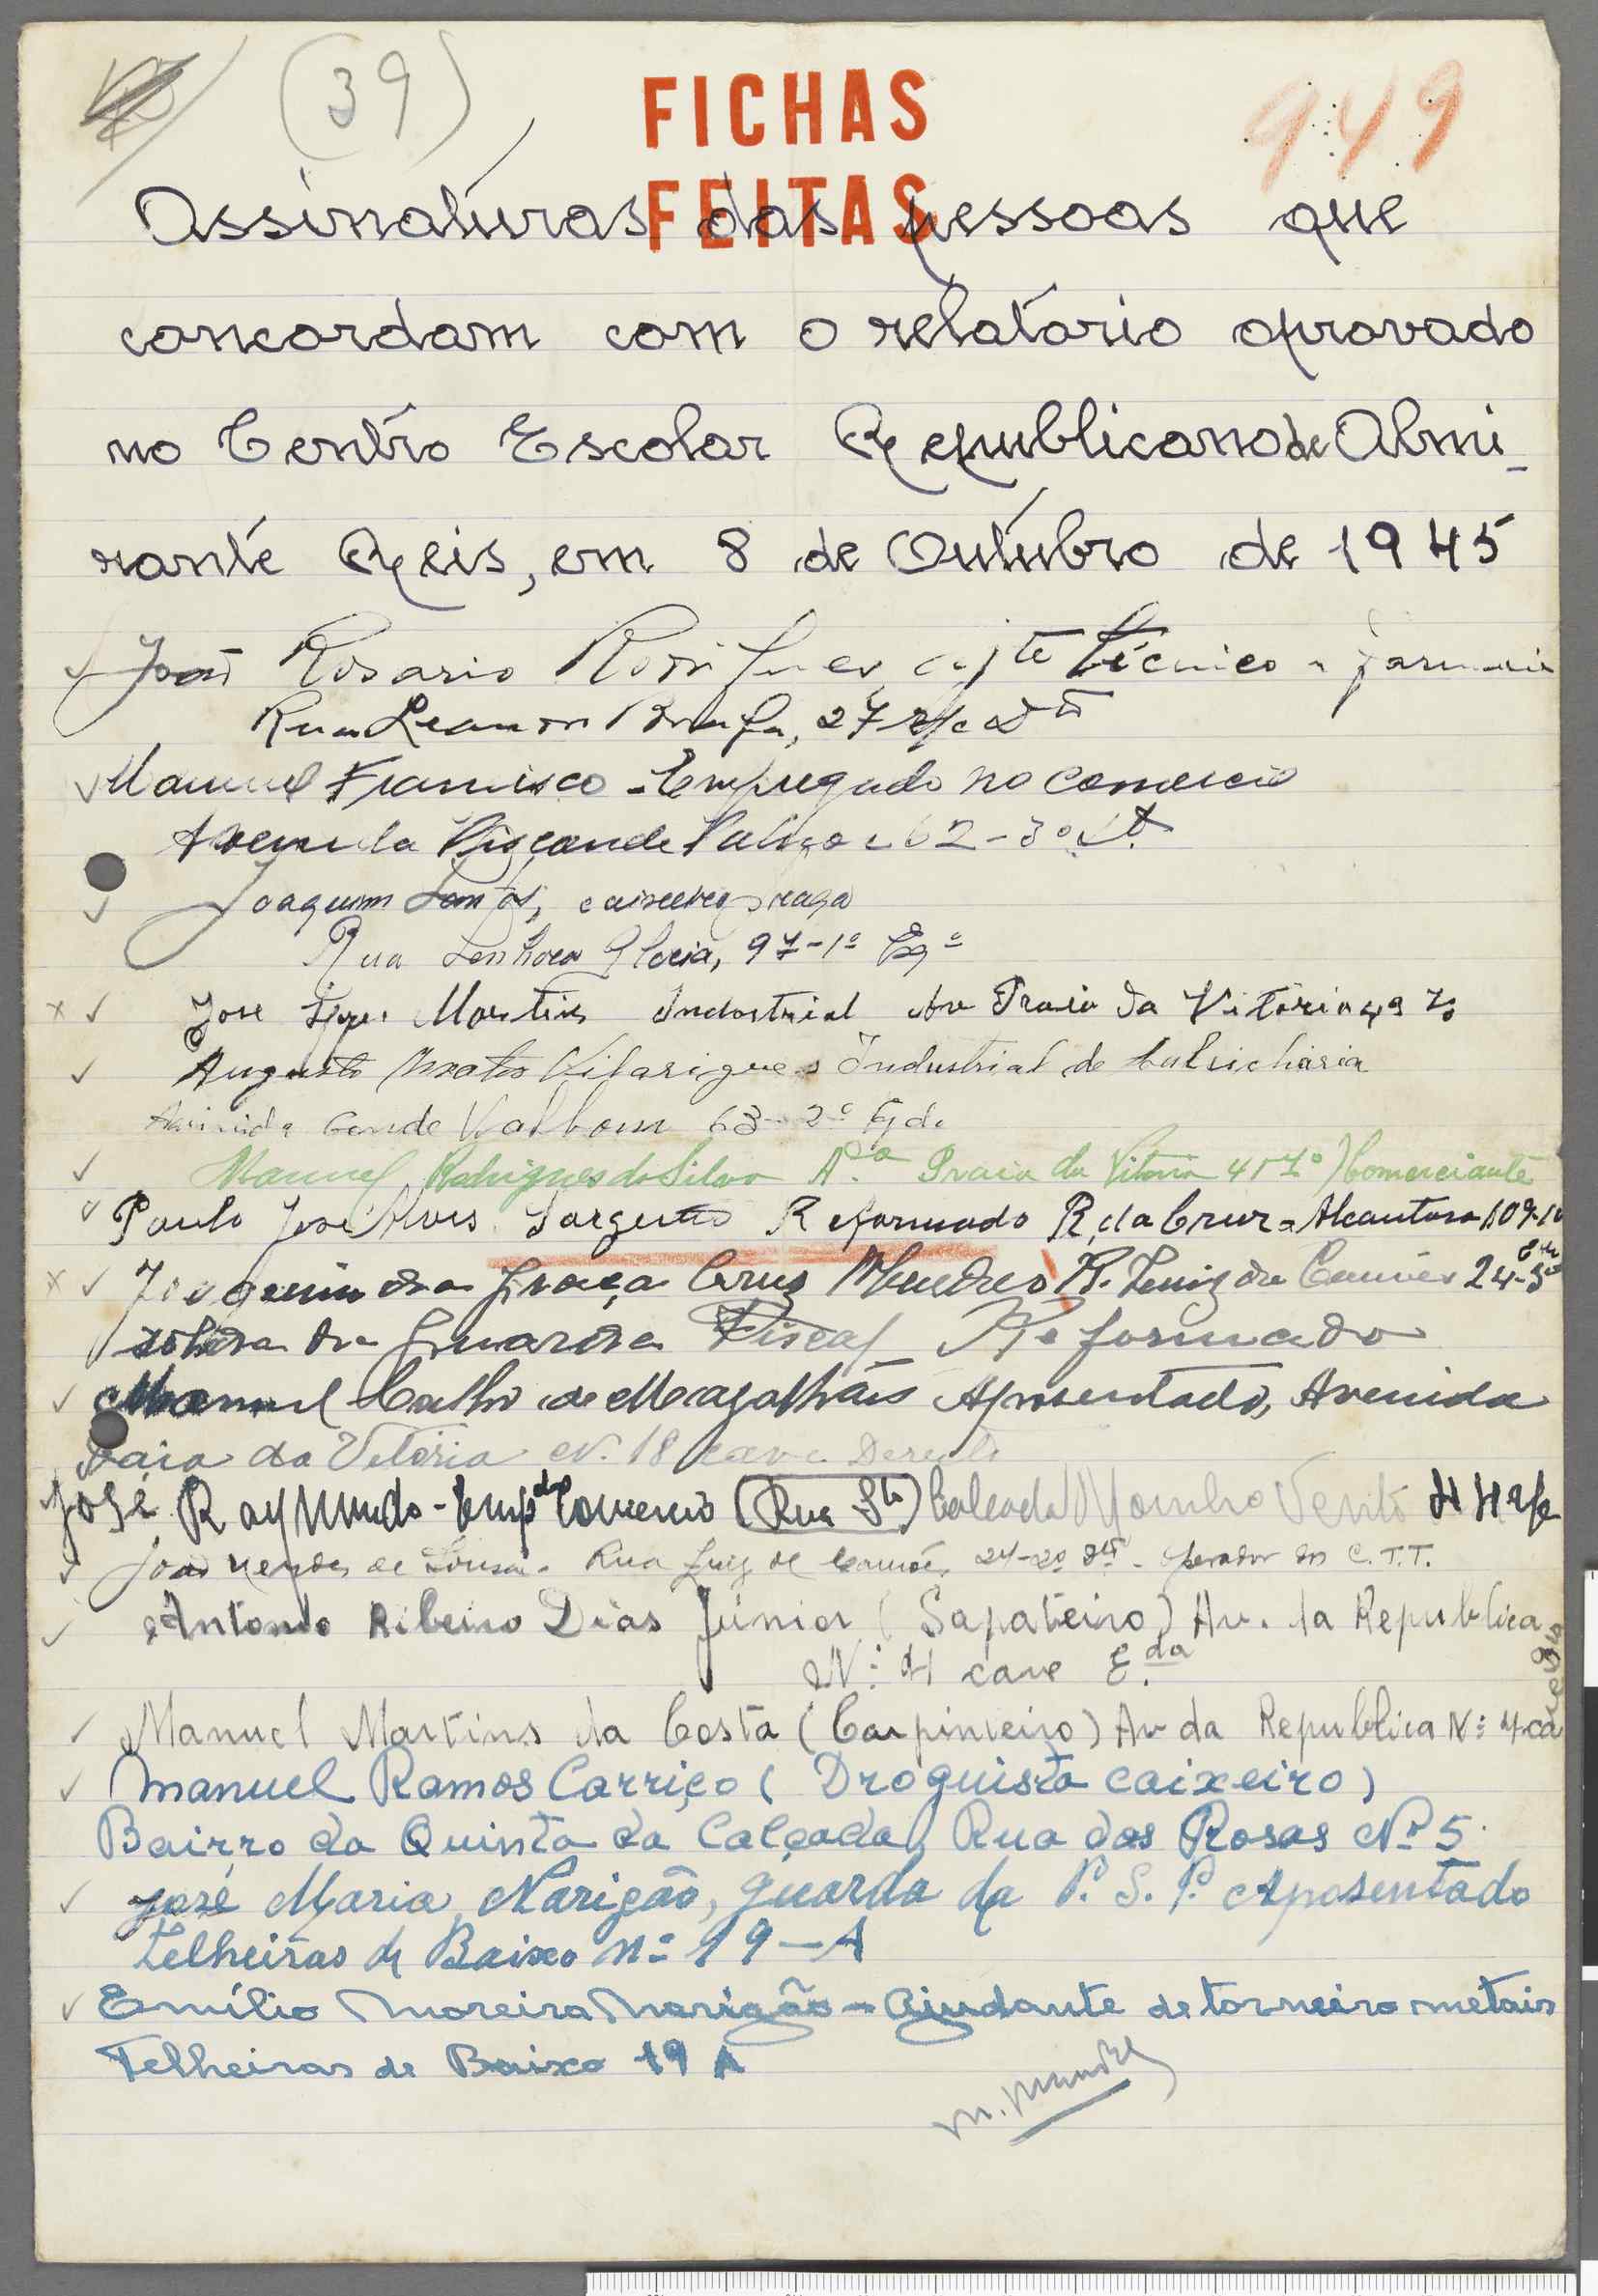 (39)
FICHAS
FEITAS
949
Assinaturas das pessoas que
concordam com o relatório aprovado
no Centro Escolar Republicano de Almi-
rante Reis, em 8 de Outubro de 1945
João Rosario Rodrigues, ajte técnico
Rua 27 r/c Dto
Manuel Francisco - Empregado no Comercio
Avenida Visconde Valmor 62-3º
Joaquim Santos, caixeiro praça
Rua Senhora Gloria, 97-1º Esqº
José Martins Industrial Av Praia da Vitória 49
Augusto Matos Vilarigues Industrial de
Avenida Conde Valbom 63-2º
Manuel Rodrigues da Silva Aᵈᵃ Praia da Vitoria 41 Comerciante
Paulo José Alves Sargento Reformado R. da Cruz a Alcantara 109-1º
Joaquim da Graça Cruz Mendes R. Luiz de Camões 24-3º
da Guarda Fiscal Reformado
Manuel de Magalhães Aposentado, Avenida
Praia da Vitória Nº 18 cave Direito
José Raymundo - Empdo Comercio (Rua Sto) Calçada Moinho Vento 4 r/c
João Mendes de Sousa - Rua Luiz de Camões, 24-2º dto - operador dos C.T.T.
Antonio Ribeiro Dias Júnior (Sapateiro) Av. da Republica
Nº 4 cave E.da
Manuel Martins da Costa (Carpinteiro) Av da Republica Nº 4 ca
Manuel Ramos Carriço (Droguista caixeiro)
Bairro da Quinta da Calçada, Rua das Rosas Nº 5.
José Maria Narigão, guarda da P. S. P. Aposentado
Telheiras de Baixo nº 19-A
Emílio Moreira Narigão - Ajudante de torneiro metais
Telheiras de Baixo 19 A